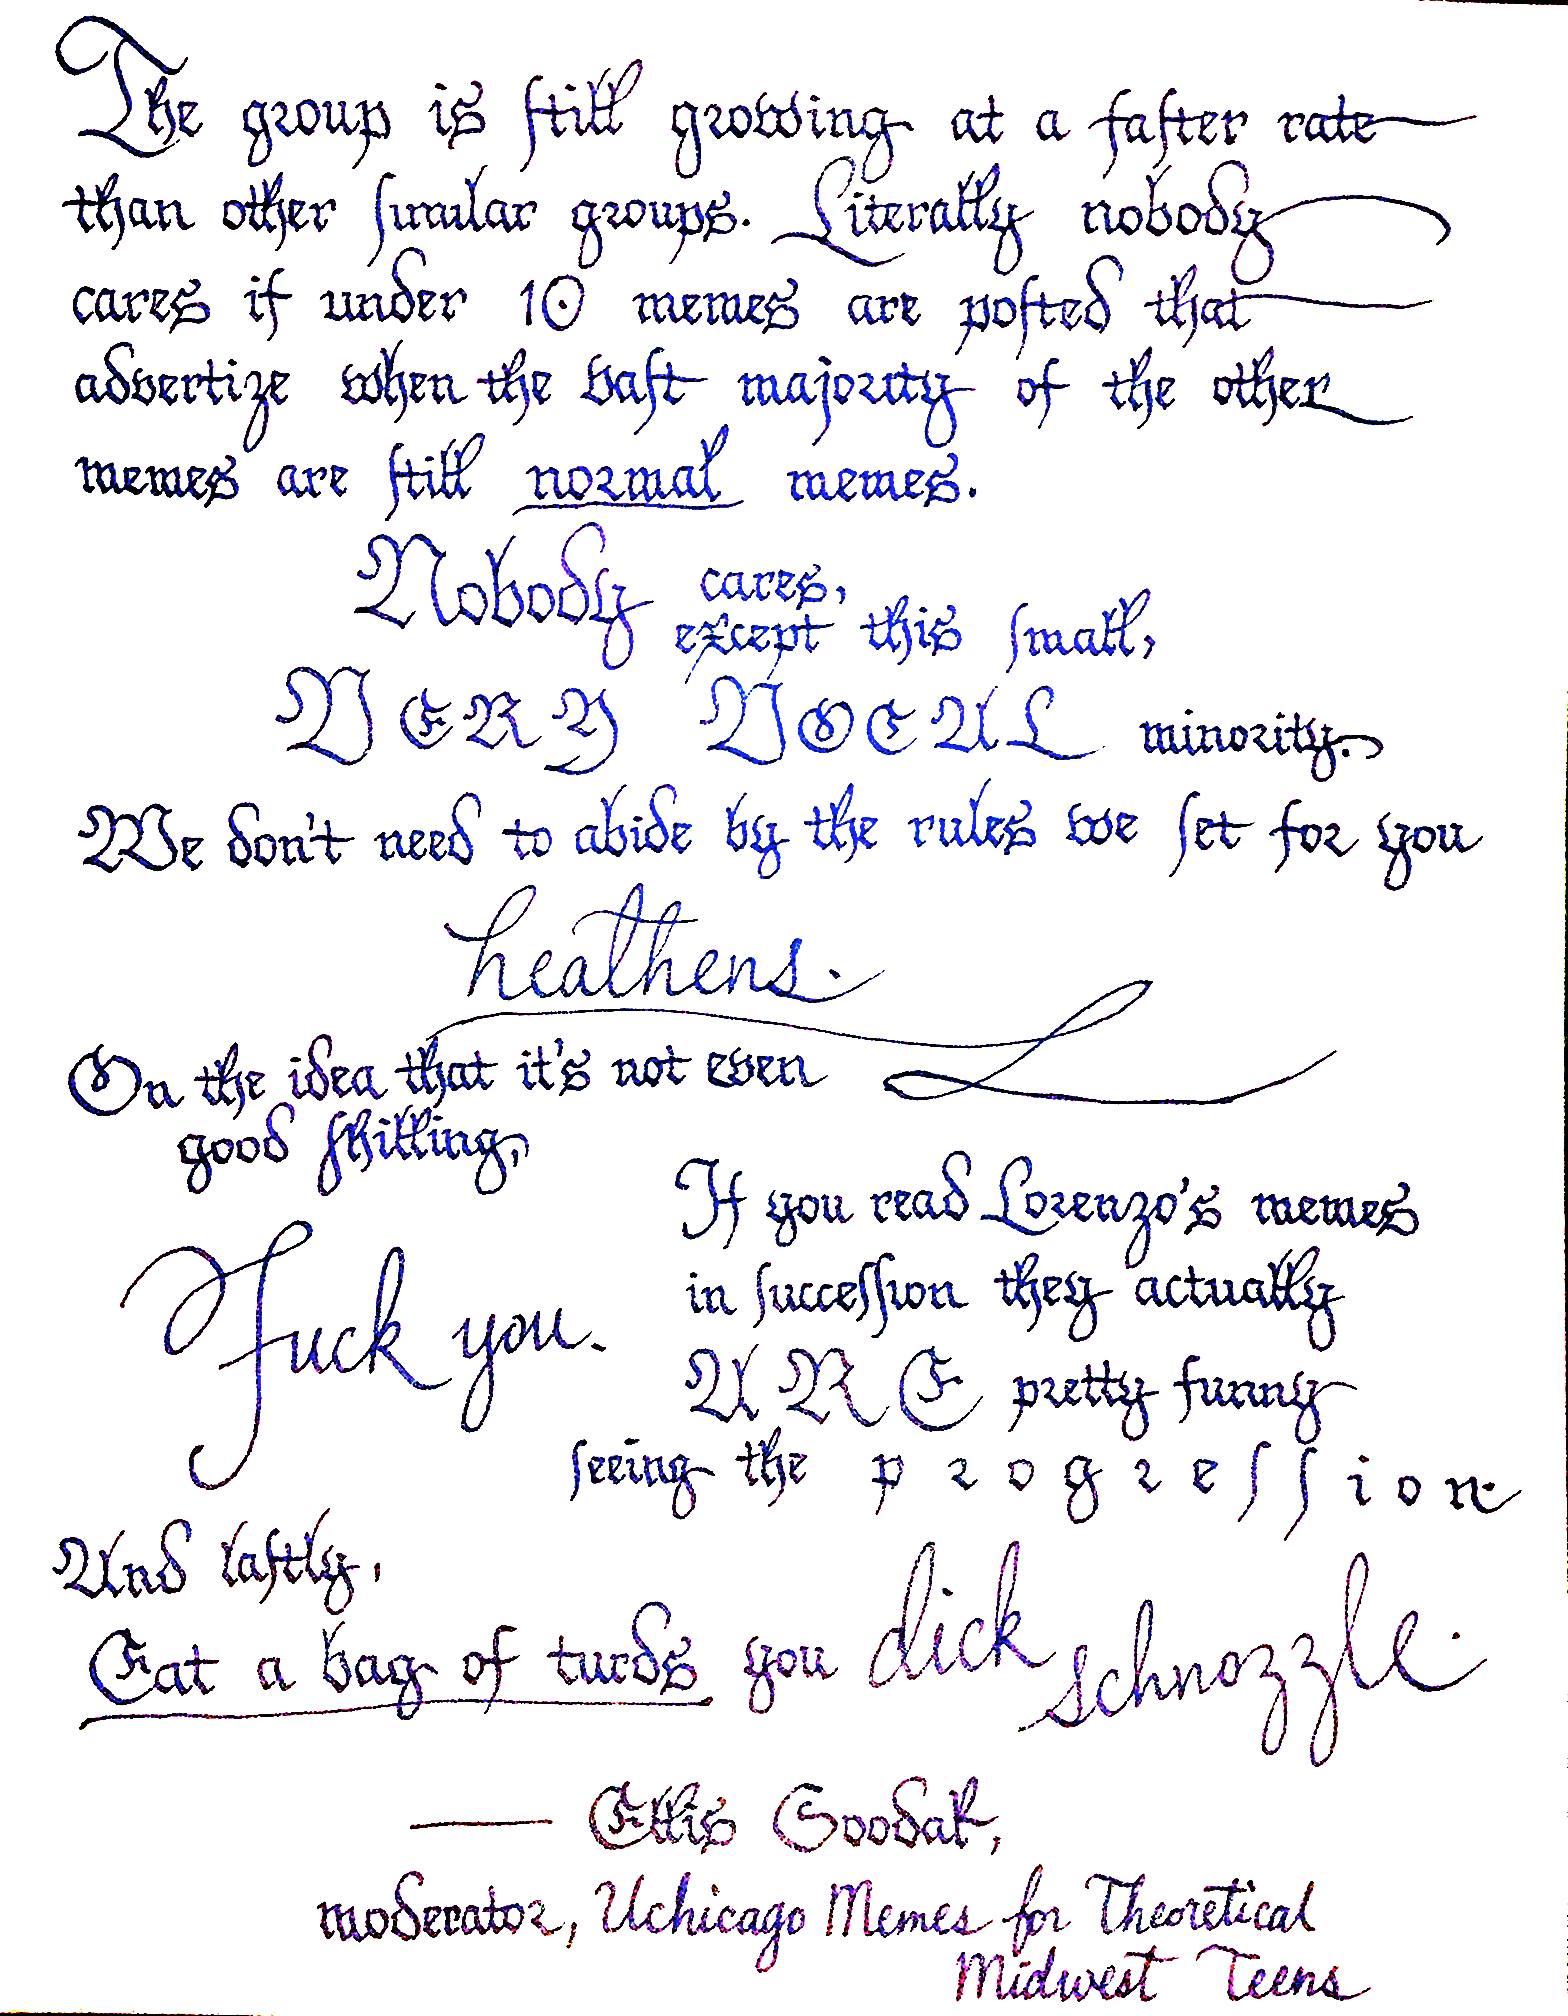 The group is ſtill growing at a faſter rate
than other ſimilar groups. Literally nobody
cares if under 10 memes are poſted that
advertize when the vaſt majority of the other
memes are ſtill normal memes.
Nobody cares,
except this ſmall,
VERY VOCAL minority.
We don't need to abide by the rules we ſet for you
heathens.
On the idea that it's not even
good ſhilling,
Fuck you.
If you read Lorenzo's memes
in ſucceſſion they actually
ARE pretty funny
ſeeing the p r o g r e ſ ſ i o n.
And laſtly,
Eat a bag of turds you dick schnozzle.
— Ellis
moderator, Uchicago Memes for Theoretical
Midwest Teens